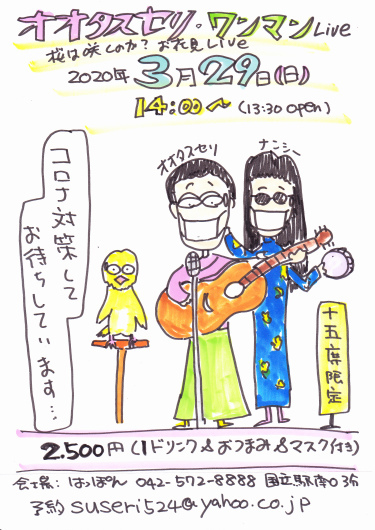 オオタスセリ・ワンマンLive
桜は咲くのか? お花見Live
2020年3月29日(日)
14:00〜 (13:30 open)
コロナ対策して
お待ちしています…
オオタスセリ
ナンシー
十五席限定
2.500円(1ドリンク&おつまみ&マスク付き)
会場: はっぽん 042-572-8888 国立駅南口3分
予約 suseri524@yahoo.co.jp